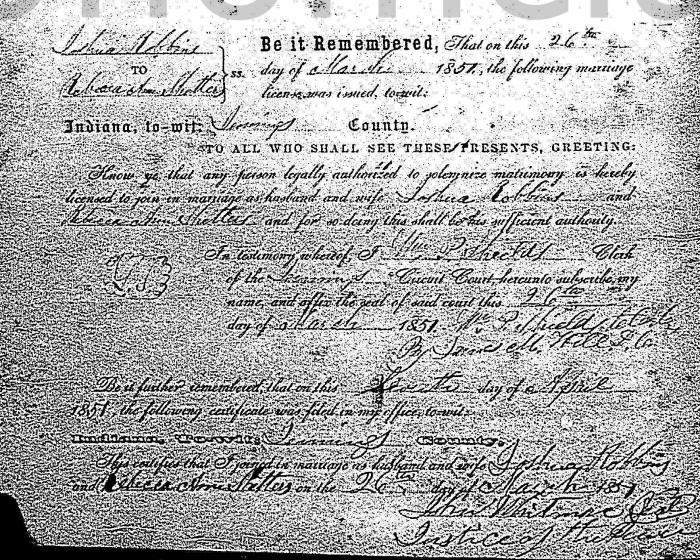 Joshua Robbins
TO
Rebecca Ann Shotters
} ss.
Be it Remembered, That on this 26th
day of March 1851, the following marriage
license was issued, to-wit:
Indiana, to-wit: Jennings County.
TO ALL WHO SHALL SEE THESE PRESENTS, GREETING:
Know ye, that any person legally authorized to solemnize matrimony is hereby
licensed to join in marriage as husband and wife Joshua Robbins and
Rebecca Ann Shotters and for so doing this shall be his sufficient authority.
In testimony whereof, I Wm P. Shields Clerk
of the Jennings Circuit Court, hereunto subscribe my
name, and affix the seal of said court this 26th
day of March 1851. Wm P. Shields Clk
By James M. Hill
Be it further remembered, that on this day of April
1851, the following certificate was filed in my office, to-wit:
Indiana, To-wit: Jennings County.
This certifies that I joined in marriage as husband and wife Joshua Robbins
and Rebecca Ann Shotters on the 26th day of March 1851
John
Justice of the Peace